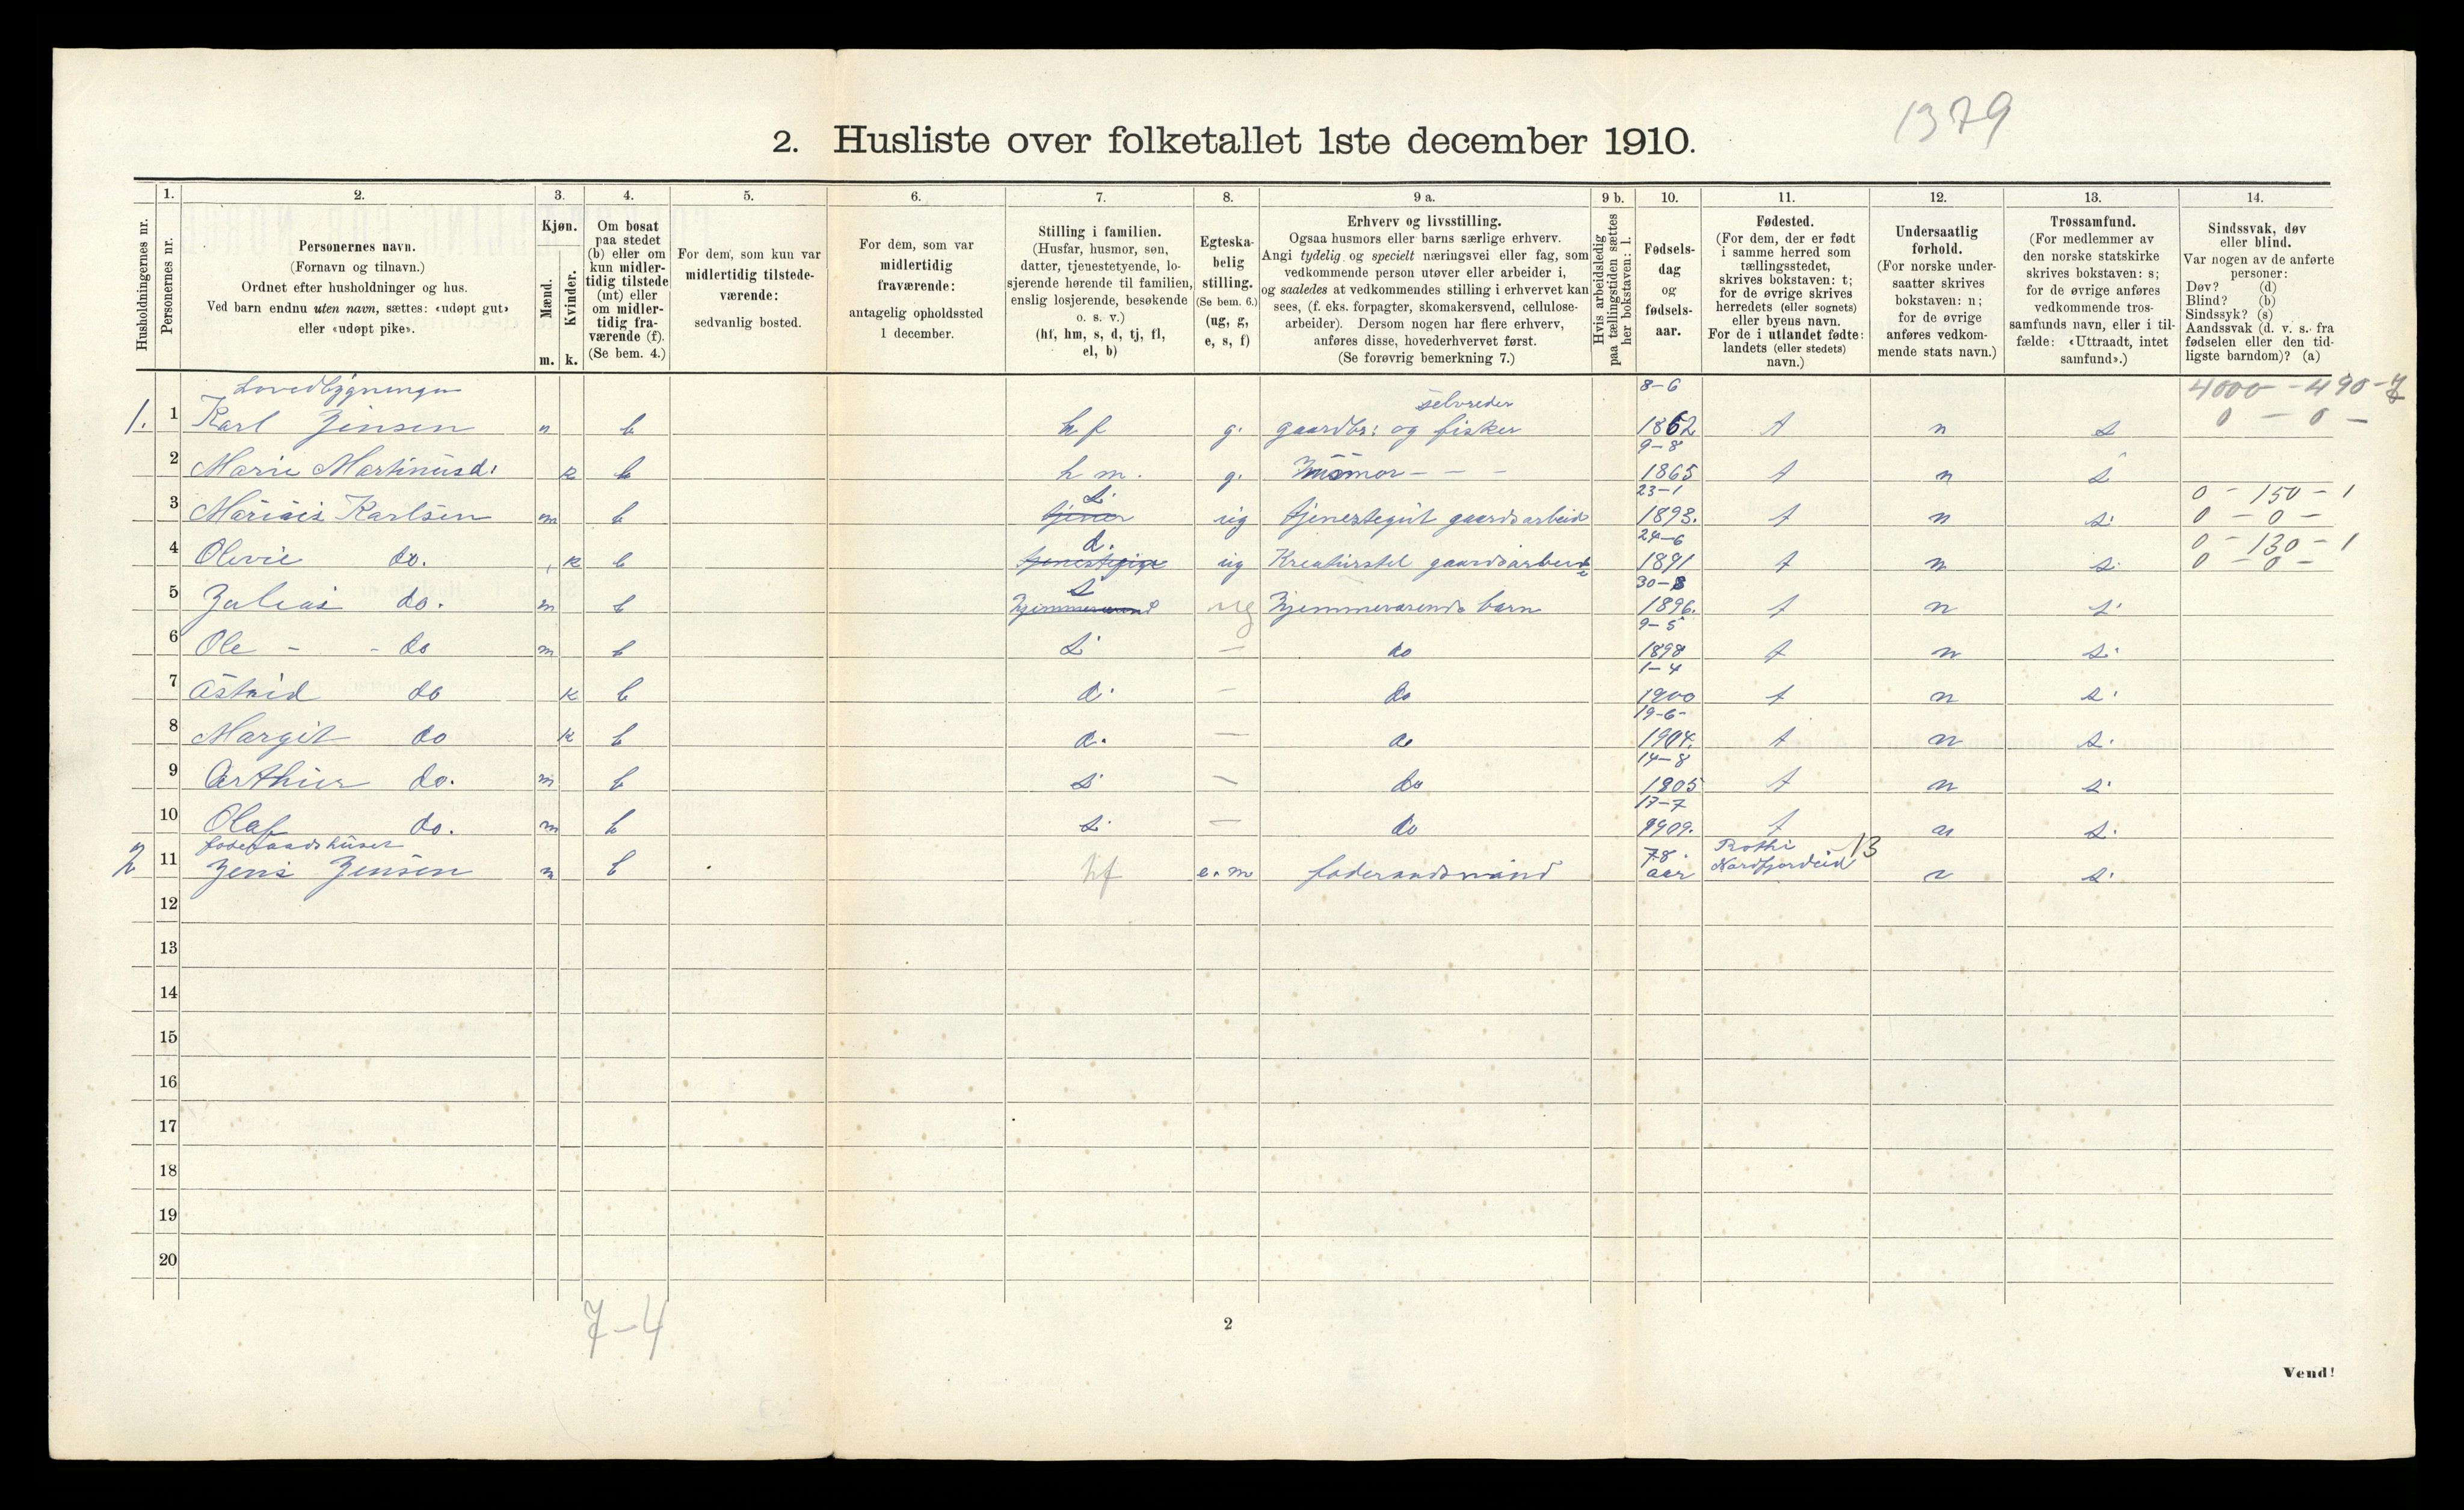 1379
2. Husliste over folketallet 1ste december 1910.
Husholdningernes nr.
1.
Personernes nr.
2.
Personernes navn.
(Fornavn og tilnavn.)
Ordnet efter husholdninger og hus.
Ved barn endnu uten navn, sættes: «udøpt gut»
eller «udøpt pike».
3.
Kjøn.
Mænd.
Kvinder.
m. k.
4.
Om bosat
paa stedet
(b) eller om
kun midler-
tidig tilstede
(mt) eller
om midler-
tidig fra-
værende (f).
(Se bem. 4.)
5.
For dem, som kun var
midlertidig tilstede-
værende:
sedvanlig bosted.
6.
For dem, som var
midlertidig
fraværende:
antagelig opholdssted
1 december.
7.
Stilling i familien.
(Husfar, husmor, søn,
datter, tjenestetyende, lo-
sjerende hørende til familien,
enslig losjerende, besøkende
o. s. v.)
(hf, hm, s, d, tj, fl,
el, b)
8.
Egteska-
belig
stilling.
(Se bem. 6.)
(ug, g,
e, s, f)
9 a.
Erhverv og livsstilling.
Ogsaa husmors eller barns særlige erhverv.
Angi tydelig og specielt næringsvei eller fag, som
vedkommende person utøver eller arbeider i,
og saaledes at vedkommendes stilling i erhvervet kan
sees, (f. eks. forpagter, skomakersvend, cellulose-
arbeider). Dersom nogen har flere erhverv,
anføres disse, hovederhvervet først.
(Se forøvrig bemerkning 7.)
9 b.
Hvis arbeidsledig
paa tællingstiden sættes
her bokstaven: l.
10.
Fødsels-
dag
og
fødsels-
aar.
11.
Fødested.
(For dem, der er født
i samme herred som
tællingsstedet,
skrives bokstaven: t;
for de øvrige skrives
herredets (eller sognets)
eller byens navn.
For de i utlandet fødte:
landets (eller stedets)
navn.)
12.
Undersaatlig
forhold.
(For norske under-
saatter skrives
bokstaven: n;
for de øvrige
anføres vedkom-
mende stats navn.)
13.
Trossamfund.
(For medlemmer av
den norske statskirke
skrives bokstaven: s;
for de øvrige anføres
vedkommende tros-
samfunds navn, eller i til-
fælde: «Uttraadt, intet
samfund».)
14.
Sindssvak, døv
eller blind.
Var nogen av de anførte
personer:
Døv? (d)
Blind? (b)
Sindssyk? (s)
Aandssvak (d. v. s. fra
fødselen eller den tid-
ligste barndom)? (a)
8-6 4000 - 490 -
selvreder
1. 1 Karl Jensen b hf g. gaardbr: og fisker 1862 t n s 0 - 0 -
9-8
2 Marie Martinusd: k b hm. g. 1865 t n s
23-1 0 - 150 - 1
s.
3 Karlsen m b tjener ug tjenestegut gaardsarbeid 1893. t n s. 0 - 0 -
24-6 0 - 130 - 1
d.
4 do. k b ug Kreaturstel gaardsarbeide 1891 t n s. 0 - 0 -
30-8
s
5 do. m b ug Hjemmeværende barn 1896. t n s.
9-5
6 Ole - - do m b s — do 1898 t n s.
1-4
7 Astrid do k b d. — do 1900 t n s.
19-6-
8 Margit do k b d. — do 1904. t n s.
14-8
9 Arthur do. m b s — do 1905 t n s.
17-7
10 Olaf do. m b s. — do 1909. t n s.
foderaadshuset
78. Nordfjordeid 13
2 11 Jens Jensen b hf e. m foderaadsmand aar s.
12
13
14
15
16
17
18
19
20
7-4
2
Vend!